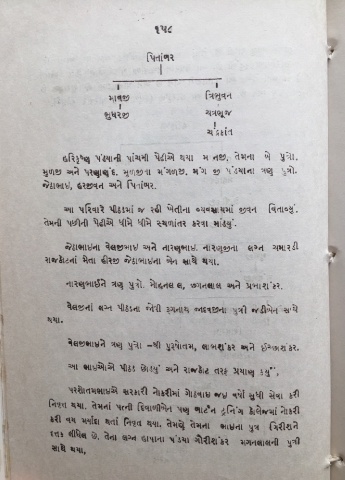 ૧૫૮
પિતાંબર
માવજી ત્રિભુવન
ભુધરજી ચત્રભૂજ
ચંદ્રકાંત
હરિકૃષ્ણ પંડયાની પાંચમી પેઢીએ થયા મનજી. તેમના બે પુત્રો.
મુળજી અને પરમાણંદ. મુળજીના મંગળજી. મંગળજી પંડયાના ત્રણ પુત્રો.
જેઠાભાઇ, હરજીવન અને પિતાંબર.
આ પરિવારે પીઠડમાં જ રહી ખેતીના વ્યવસાયમાં જીવન વિતાવ્યું.
તેમની પછીની પેઢીએ ધીમે ધીમે સ્થળાંતર કરવા માંડયું.
જેઠાભાઇના વેલજીભાઇ અને નારણભાઇ. નારણજીના લગ્ન ગમારડી
રાજકોટનાં મેતા હીરજી જેઠાભાઇના બેન સાથે થયા.
નારણભાઇને ત્રણ પુત્રો. મોહનલાલ, છગનલાલ અને પ્રભાશંકર.
વેલજીનાં લગ્ન પીઠડના જોષી રૂગનાથ જાદવજીના પુત્રી જડીબેન સાથે
થયા.
વેલજીભાઇને ત્રણ પુત્રો -શ્રી પુરષોતમ, લાભશંકર અને ઈશ્વરશંકર.
આ ભાઇઓએ પીઠડ છોડયું અને રાજકોટ તરફ પ્રયાણ કર્યું.
પરશોતમભાઇએ સરકારી નોકરીમાં ગોઠવાઇ જઇ વર્ષો સુધી સેવા કરી
નિવૃત થયા. તેમનાં પત્ની દિવાળીબેન પણ બાર્ટન ટ્રેનિંગ કોલેજમાં નોકરી
કરી વય મર્યાદા થતાં નિવૃત થયા. તેમણે તેમના ભાઇના પુત્ર ગિરીશને
દતક લીધેલ છે. તેના લગ્ન હાપાના પંડયા ગૌરીશંકર મગનલાલની પુત્રી
સાથે થયા.